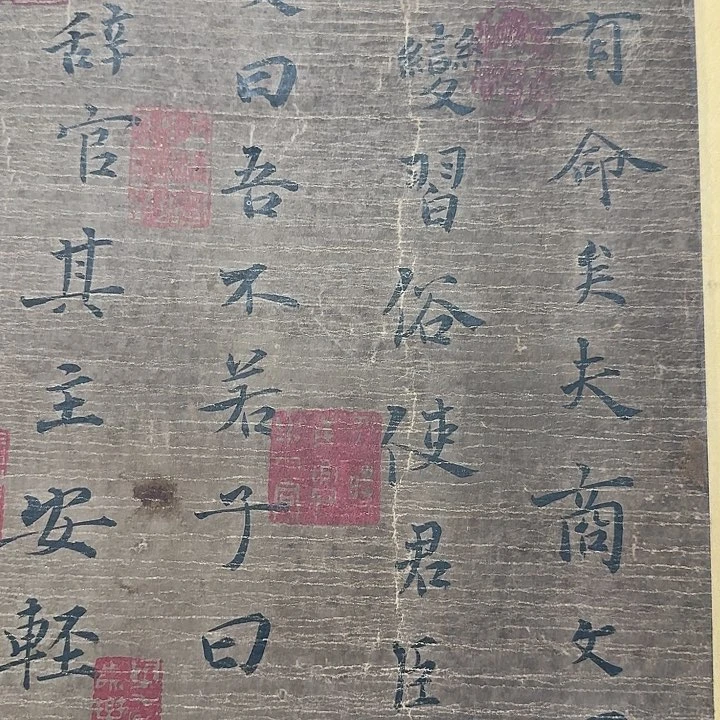 有命矣夫商文
變習俗使君臣
曰吾不若子曰
辞官其主安輕